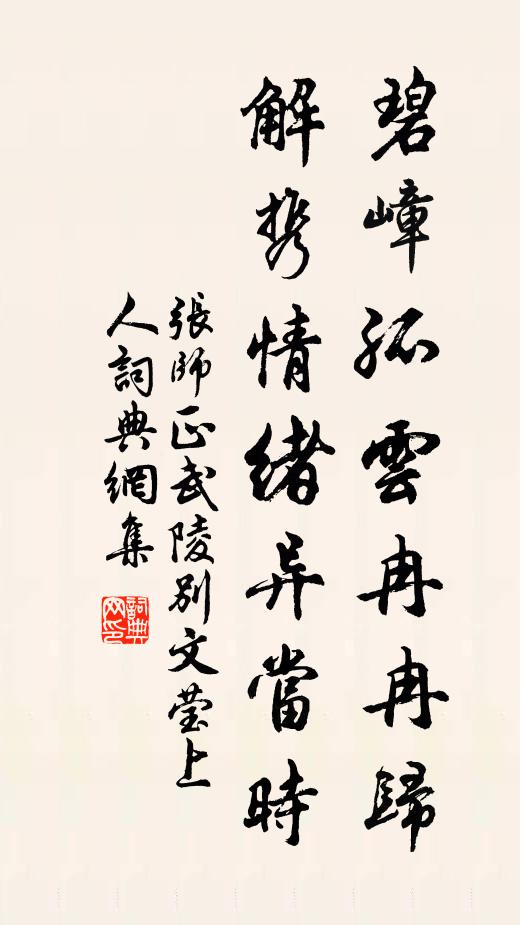 碧嶂孤雲冉冉歸
解携情緒异當時
張師正武陵別文莹上
人詞典網集
詞典网印